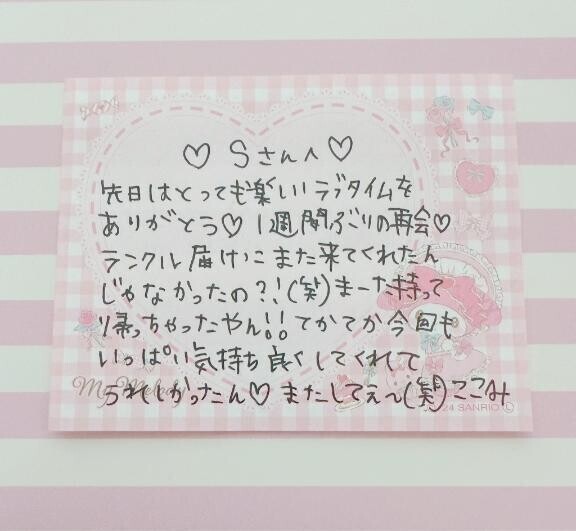 ♡ Sさんへ ♡
先日はとっても楽しいラブタイムを
ありがとう♡ 1週間ぶりの再会♡
ランクル届けにまた来てくれたん
じゃなかったの?!(笑)まーた持って
帰っちゃったやん!! てかてか今回も
いっぱい気持ち良くしてくれて
うれしかったん♡ またしてぇ〜(笑)ここみ
My Melody
24 SANRIO Ⓛ